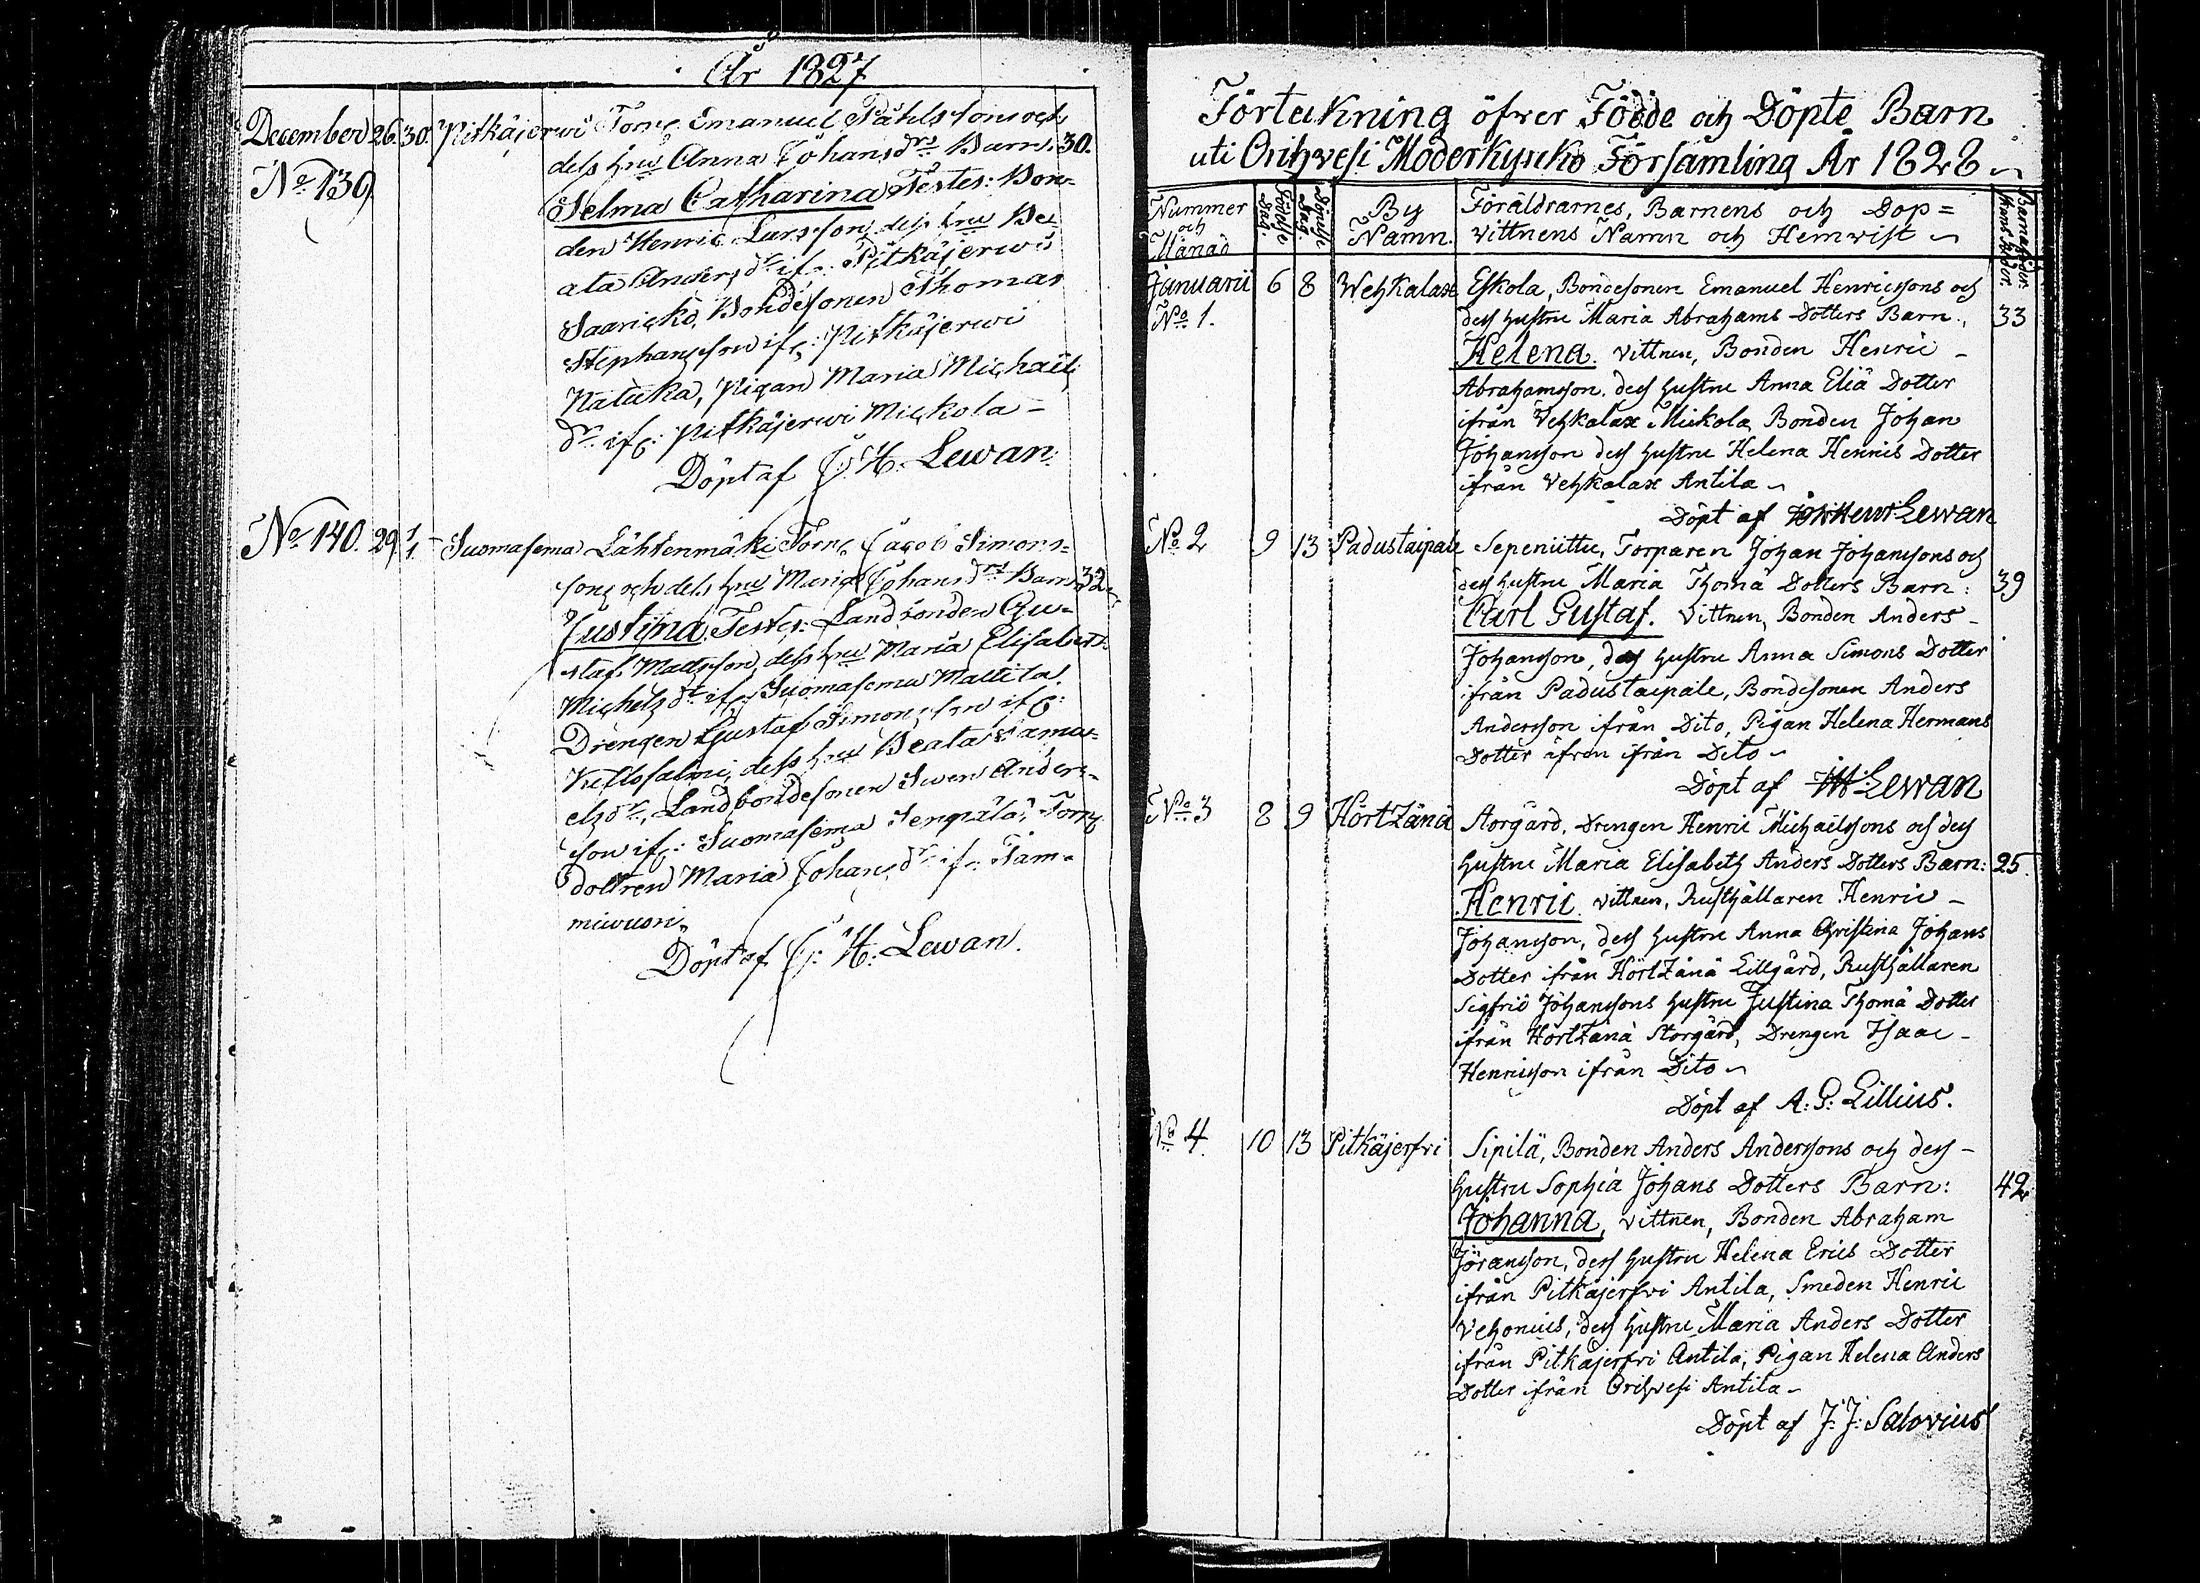 År 1827
December 26. 30. Pitkäjerwi Torp. Emanuel Påhlssons och
No 139 dess hru Anna Johansdrs Barn. 30.
Selma Catharina Testes: Bon-
den Henric Larsson, dess hru Be-
ata Andersdr ifr: Pitkäjerwi
Saaricko, Bondesonen Thomas
Stephansson ifr: Pitkäjerwi
Pigan Maria Michaels
dr ifr: Pitkäjerwi Mickola -
Döpt af J: H: Lewan.
No 140. 29 1/1 Suomasema Lähtenmäki Torp. Jacob Simons-
sons och dess hru Maria Johansdrs Barn 32
Justina. Testes: Landbonden Gu-
staf Mattsson, dess hru Maria Elisabeth
Michelsdr ifr: Suomasema Mattila.
Drengen Gustaf Simonsson ifr:
dess hru Beata Samu-
elsdr, Landbondesonen Swen Anders-
son ifr: Suomasema Torp.
dottren Maria Johansdr ifr: Täm-
miwuori,
Döpt af J: H: Lewan.
Förteckning öfver Födde och Döpte Barn
uti Orihvesi Moderkyrko Församling År 1828
Nummer och Månad Födelse Dag. Döpelse Dag. By Namn. Föräldrarnes, Barnens och Dop=
vittnens Namn och Hemvist Barnaföderskans ålder.
Januarii 6 8 Wehkalax Eskola, Bondesonen Emanuel Henricssons och
No 1. dess hustru Maria Abrahams Dotters Barn: 33
Helena. vittnen, Bonden Henric -
Abrahamsson, dess hustru Anna Eliä Dotter
ifrån Vehkalax Mickola, Bonden Johan
Johansson dess hustru Helena Henrics Dotter
ifrån Vehkalax Antila
Döpt af Lewan
No 2 9 13 Padustaipale Sepeniittu, Torparen Johan Johanssons och
dess hustru Maria Thomä Dotters Barn: 39
Carl Gustaf. vittnen, Bonden Anders -
Johansson, dess hustru Anna Simons Dotter
ifrån Padustaipale, Bondesonen Anders
Andersson ifrån Dito, Pigan Helena Hermans
Dotter äfven ifrån Dito
Döpt af JH Lewan
No 3 8 9 Hörtzänä Storgård, Drengen Henric Michaelssons och dess
hustru Maria Elisabeth Anders Dotters Barn: 25.
Henric. vittnen, Rusthållaren Henric -
Johansson, dess hustru Anna Christina Johans
Dotter ifrån Hörtzänä Lillgård, Rusthållaren
Sigfrid Johanssons hustru Justina Thomä Dotter
ifrån Hörtzänä Storgård, Drengen Isaac -
Henricsson ifrån Dito
Döpt af A: G: Lillius.
No 4. 10 13 Pitkäjerfvi Sipilä, Bonden Anders Anderssons och dess -
hustru Sophia Johans Dotters Barn: 42
Johanna, vittnen, Bonden Abraham
Jöransson, dess hustru Helena Erics Dotter
ifrån Pitkäjerfvi Antila, Smeden Henric
Vehonius, dess hustru Maria Anders Dotter
ifrån Pitkäjerfvi Antila, Pigan Helena Anders
Dotter ifrån Orihvesi Antila -
Döpt af J: J: Salovius